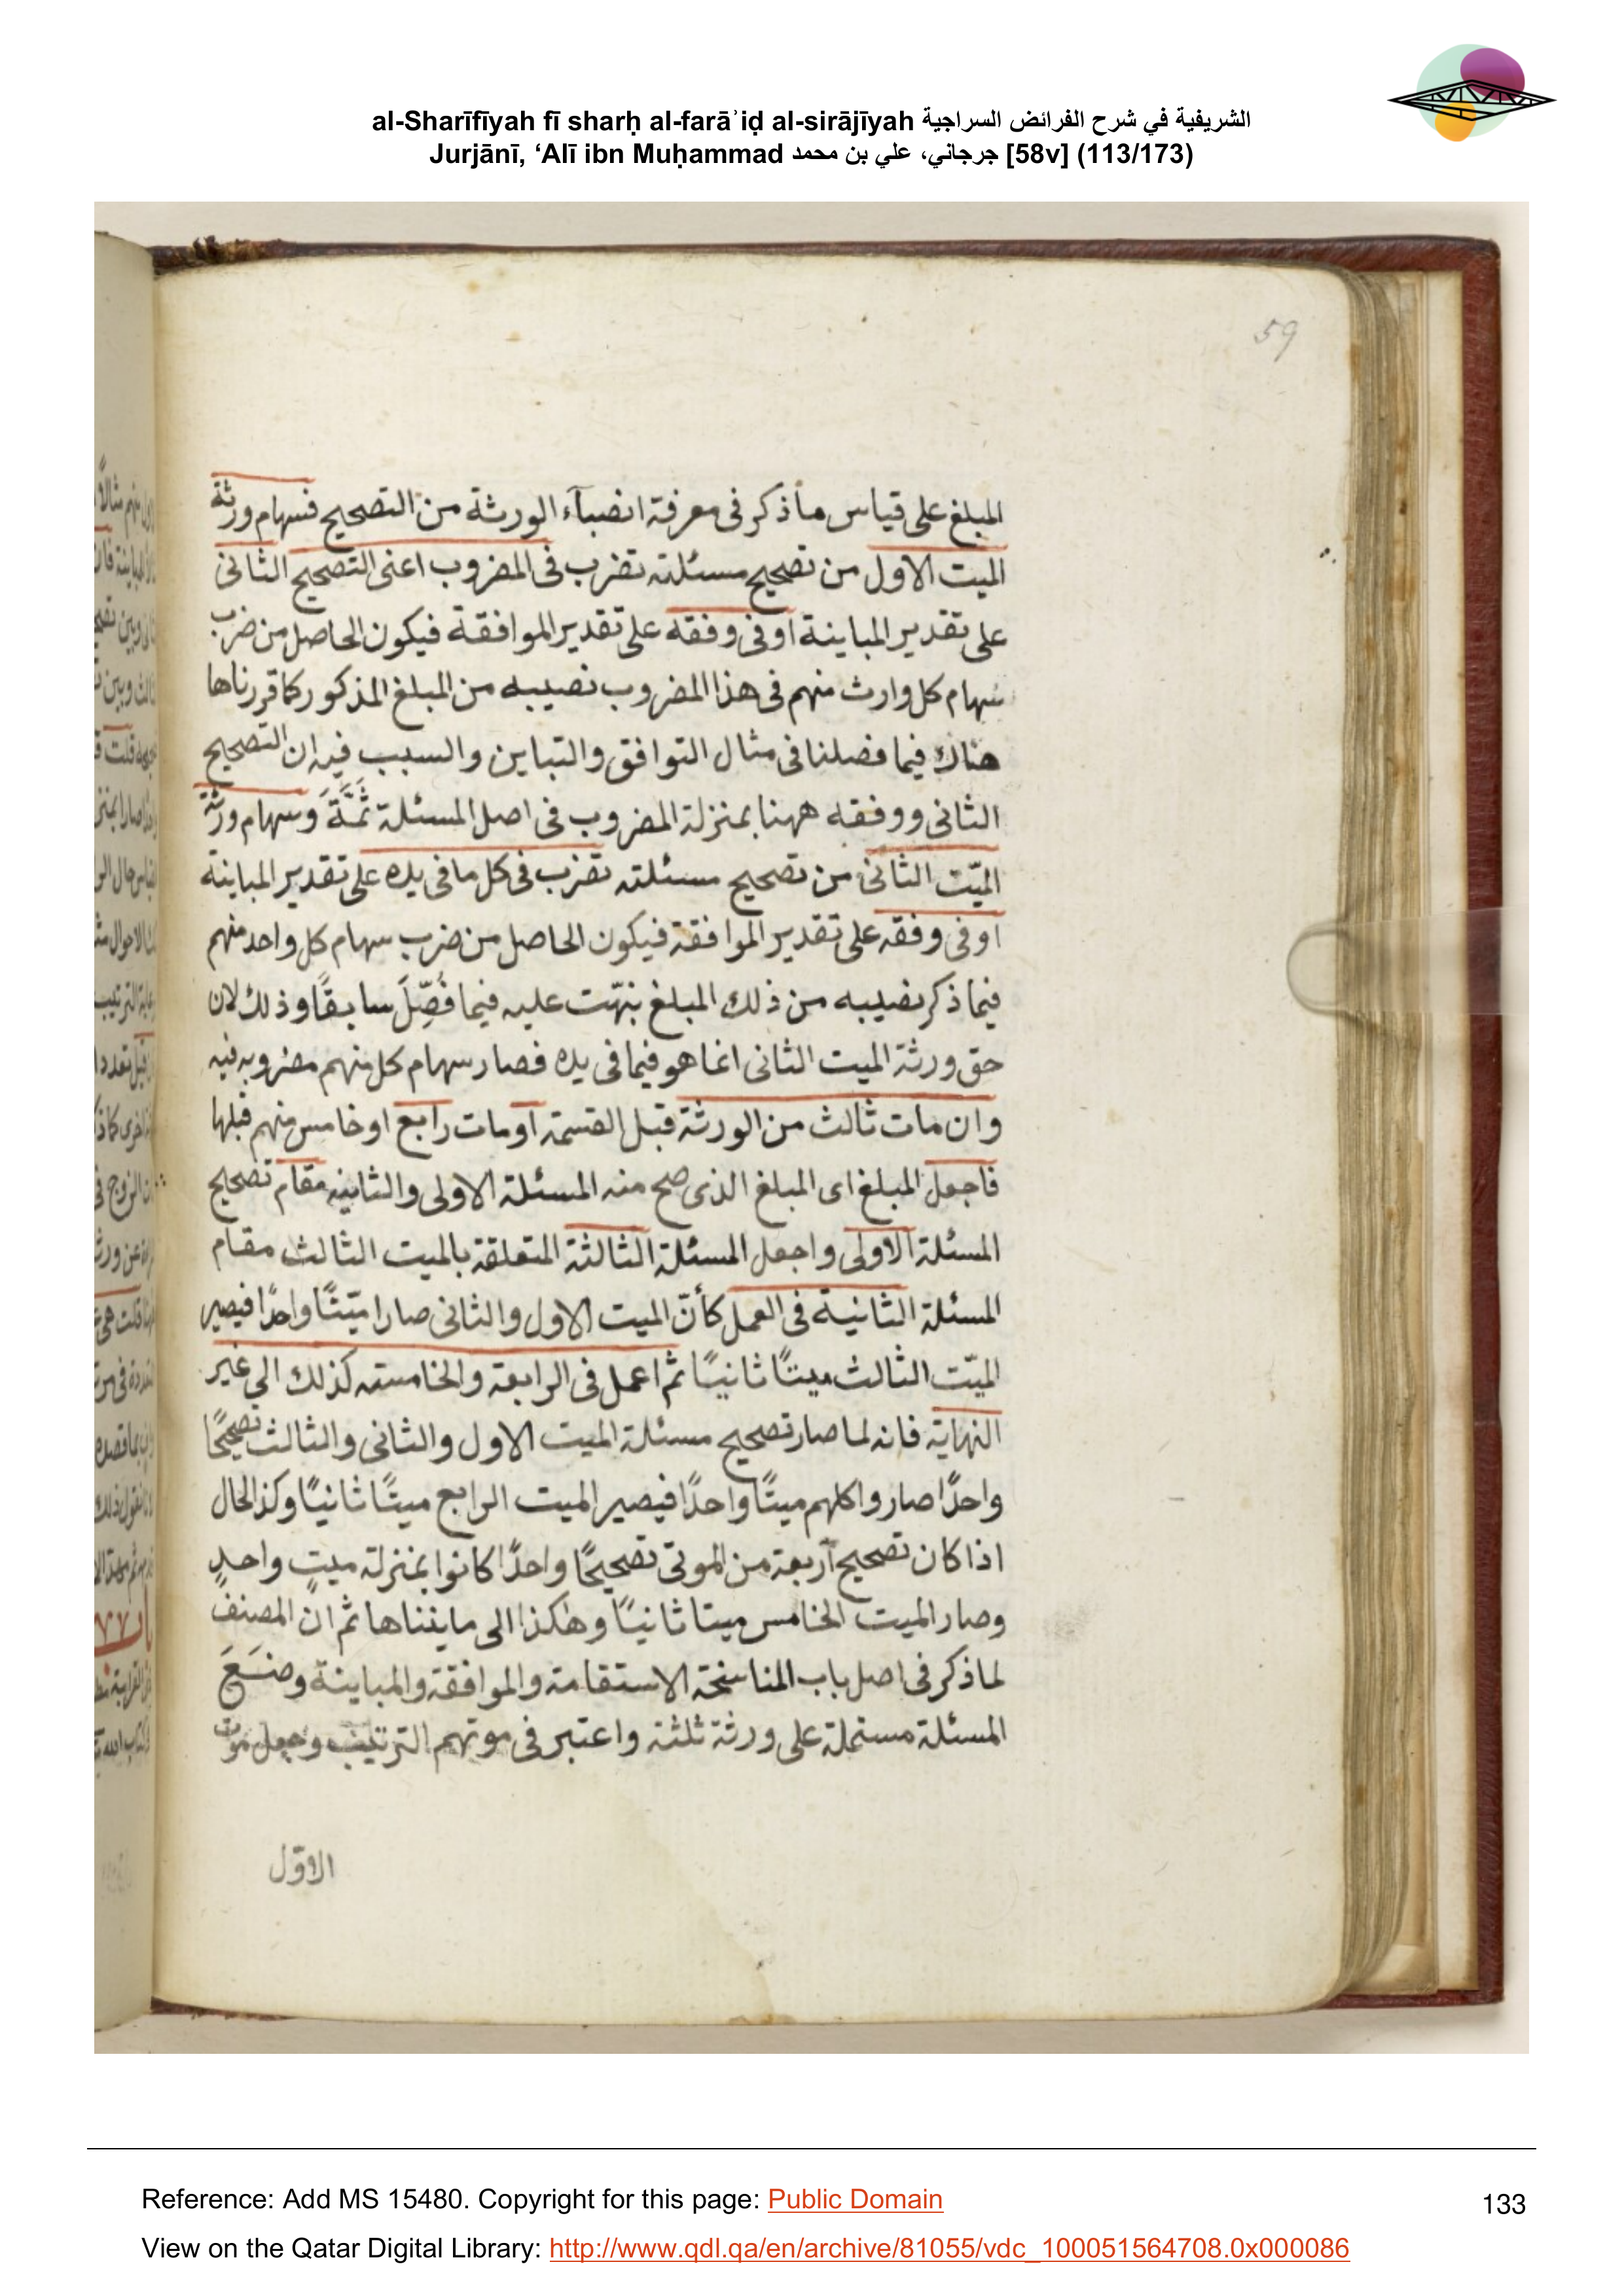 al-Sharīfīyah fī sharḥ al-farāʾiḍ al-sirājīyah الشريفية في شرح الفرائض السراجية
Jurjānī, ‘Alī ibn Muḥammad جرجاني، علي بن محمد [58v] (113/173)
59
المبلغ على قياس ما ذكر فى معرفة انصبآء الورثة من التصحيح فسهام ورثة
الميت الاول من تصحيح مسئلته تضرب فى المضروب اعنى التصحيح الثانى
على تقدير المباينة او فى وفقه على تقدير الموافقة فيكون الحاصل من ضرب
سهام كل وارث منهم فى هذا المضروب نصيبه من المبلغ المذكور كما قررناها
هناك فيما فصلنا فى مثال التوافق والتباين والسبب فيه ان التصحيح
الثانى ووفقه ههنا بمنزلة المضروب فى اصل المسئلة ثَمَّةَ وسهام ورثة
الميّت الثانى من تصحيح مسئلته تضرب فى كل ما فى يده على تقدير المباينة
او فى وفقه على تقدير الموافقة فيكون الحاصل من ضرب سهام كل واحد منهم
فيما ذكر نصيبه من ذلك المبلغ بنهّت عليه فيما فُصِّلَ سابقًا وذلك لان
حق ورثة الميت الثانى انما هو فيما فى يده فصار سهام كل منهم مضروبه فيه
وان مات ثالث من الورثة قبل القسمة اومات رابع او خامس منهم قبلها
فاجعل المبلغ اى المبلغ الذى صح منه المسئلة الاولى والثانيه مقام تصحيح
المسئلة الاولى واجعل المسئلة الثالثة المتعلقة بالميت الثالث مقام
المسئلة الثانية فى العمل كأنّ الميت الاول والثانى صارا ميّتًا واحدًا فيصير
الميّت الثالث ميتًا ثانيًا ثم اعمل فى الرابعة والخامسة كذلك الي غير
النهاية فانه لما صار تصحيح مسئلة الميت الاول والثانى والثالث تصحيحًا
واحدًا صاروا كلهم ميتًا واحدًا فيصير الميت الرابع ميتًا ثانيًا وكذ الحال
اذا كان تصحيح أربعة من الموتى تصحيحًا واحدًا كانوا بمنزلة ميتٍ واحدٍ
وصار الميت الخامس ميتا ثانيًا وهكذا الى مايفناها ثم ان المصنف
لما ذكر فى اصل باب المناسخة الاستقامة والموافقة والمباينة وضَعَ
المسئلة مستملة على ورثة ثلثة واعتبر فى موتهم الترتيب وجعل موت
الاوّل
Reference: Add MS 15480. Copyright for this page: Public Domain
133
View on the Qatar Digital Library: http://www.qdl.qa/en/archive/81055/vdc_100051564708.0x000086